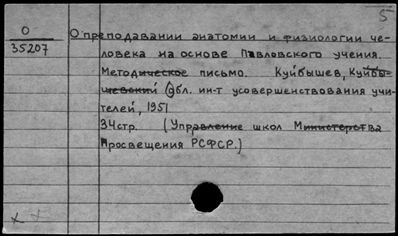 5
О
35207
О преподавании анатомии и физиологии че-
ловека на основе Павловского учения.
Методическое письмо. Куйбышев, Куйбы-
шевский обл. ин-т усовершенствования учи-
телей, 1951
34стр. (Управление школ Министерства
Просвещения РСФСР.)